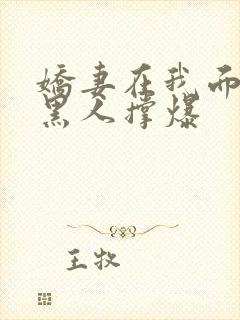 娇妻在我面
黑人撑爆
王牧